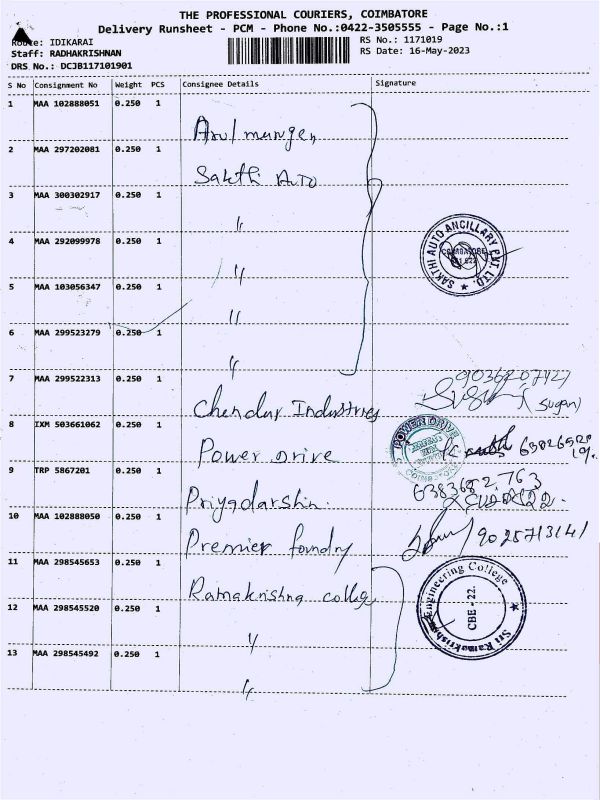 THE PROFESSIONAL COURIERS, COIMBATORE
Delivery Runsheet - PCM - Phone No.:0422-3505555 - Page No.:1
Route: IDIKARAI
RS No.: 1171019
Staff: RADHAKRISHNAN
RS Date: 16-May-2023
DRS No.: DCJB117101901
S No Consignment No Weight PCS Consignee Details Signature
1 MAA 102888051 0.250 1 Arul murugan
2 MAA 297202081 0.250 1 Sakthi Auto
3 MAA 300302917 0.250 1 "
4 MAA 292099978 0.250 1 "
5 MAA 103056347 0.250 1 "
6 MAA 299523279 0.250 1 "
SAKTHI AUTO ANCILLARY PVT. LTD.
COIMBATORE
7 MAA 299522313 0.250 1 Chendur Industries
(Sugan)
8 IXM 503661062 0.250 1 Power Drive
POWER DRIVE
9 TRP 5867201 0.250 1 Priyadarshin
6383682763
10 MAA 102888050 0.250 1 Premier foundry 9025713141
11 MAA 298545653 0.250 1 Ramakrishna college
12 MAA 298545520 0.250 1 "
13 MAA 298545492 0.250 1 "
Sri Ramakrishna Engineering College
CBE - 22.